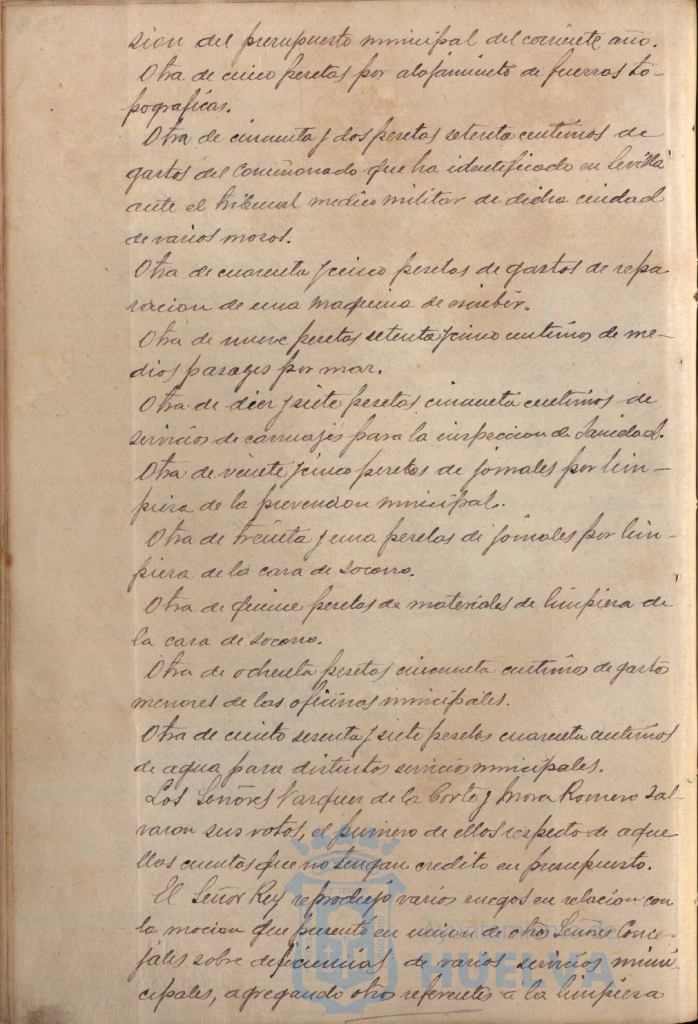 sion del presupuesto municipal del corriente año.
Otra de cinco pesetas por alojamiento de fuerzas to-
pograficas.
Otra de cincuenta y dos pesetas setenta centimos de
gastos del Comisionado que ha identificado en Sevilla
ante el tribunal medico militar de dicha ciudad
de varios mozos.
Otra de cuarenta y cinco pesetas de gastos de repa
racion de una maquina de escribir.
Otra de nueve pesetas setenta y cinco centimos de me-
dios pasages por mar.
Otra de diez y siete pesetas cincuenta centimos de
servicios de carruajes para la inspeccion de Sanidad.
Otra de veinte y cinco pesetas de jornales por lim-
pieza de la prevencion municipal.
Otra de treinta y una pesetas de jornales por lim-
pieza de la casa de socorro.
Otra de quince pesetas de materiales de limpieza de
la casa de socorro.
Otra de ochenta pesetas cincuenta centimos de gastos
menores de las oficinas municipales.
Otra de ciento sesenta y siete pesetas cuarenta centimos
de agua para distintos servicios municipales.
Los Señores Vazquez de la Corte y Mora Romero sal-
varon sus votos, el primero de ellos respecto de aque
llas cuentas que no tengan credito en presupuesto.
El Señor Rey reprodujo varios ruegos en relacion con
la mocion que presentó en union de otros Señores Conce-
jales sobre deficiencias de varios servicios muni
cipales, agregando otros referentes a la limpieza
Ayuntamiento de
HUELVA